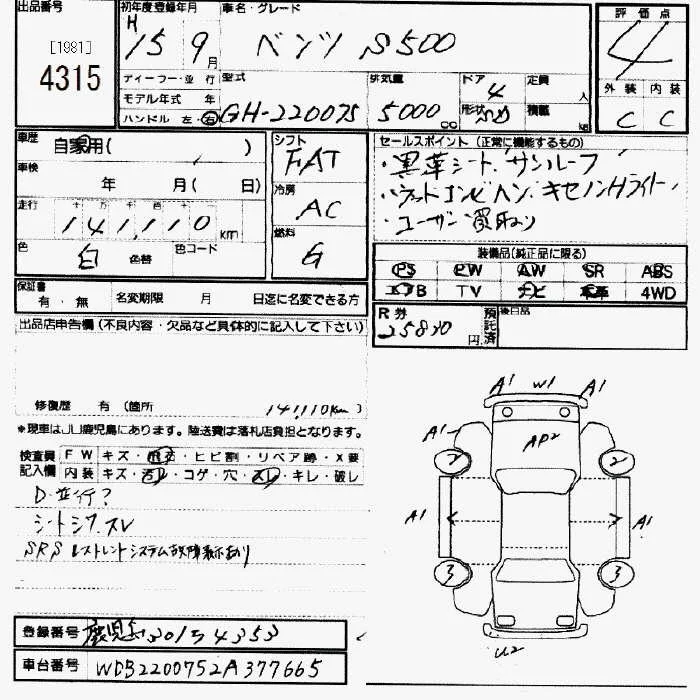 出品番号
[1981]
4315
初年度登録年月
H
15 9月
車名・グレード
ベンツ S500
評価点
4
外装 内装
C C
ディーラー・並行
モデル年式 年
ハンドル 左・右
型式
GH-220075
排気量
5000 cc
ドア
4
形状 SD
定員 人
積載 kg
車歴
自家用( )
車検
年 月( 日)
走行 十 万 千 百 十 一
141,110 km
色
白 色替
色コード
シフト
FAT
冷房
AC
燃料
G
セールスポイント (正常に機能するもの)
・黒革シート.サンルーフ
・ウッドコンビハン.キセノンHライト
・ユーザー買取り
装備品(純正品に限る)
PS PW AW SR ABS
エアB TV ナビ 本革 4WD
保証書
有・無
名変期限 月 日迄に名変できる方
R券
25830 円
預託済
後日品
出品店申告欄 (不良内容・欠品など具体的に記入して下さい)
修復歴 有 (箇所 141,110Km)
*現車はJU鹿児島にあります。陸送費は落札店負担となります。
検査員記入欄
FW キズ・飛石・ヒビ割・リペア跡・X要
内装 キズ・汚れ・コゲ・穴・スレ・キレ・破レ
D・並行?
シートシワ.スレ
SRS レストレントシステム故障表示あり
登録番号 鹿児島301す4353
車台番号 WDB2200752A377665
A1 W1 A1
A1 AP2
2 2
A1 A1
3 3
U2